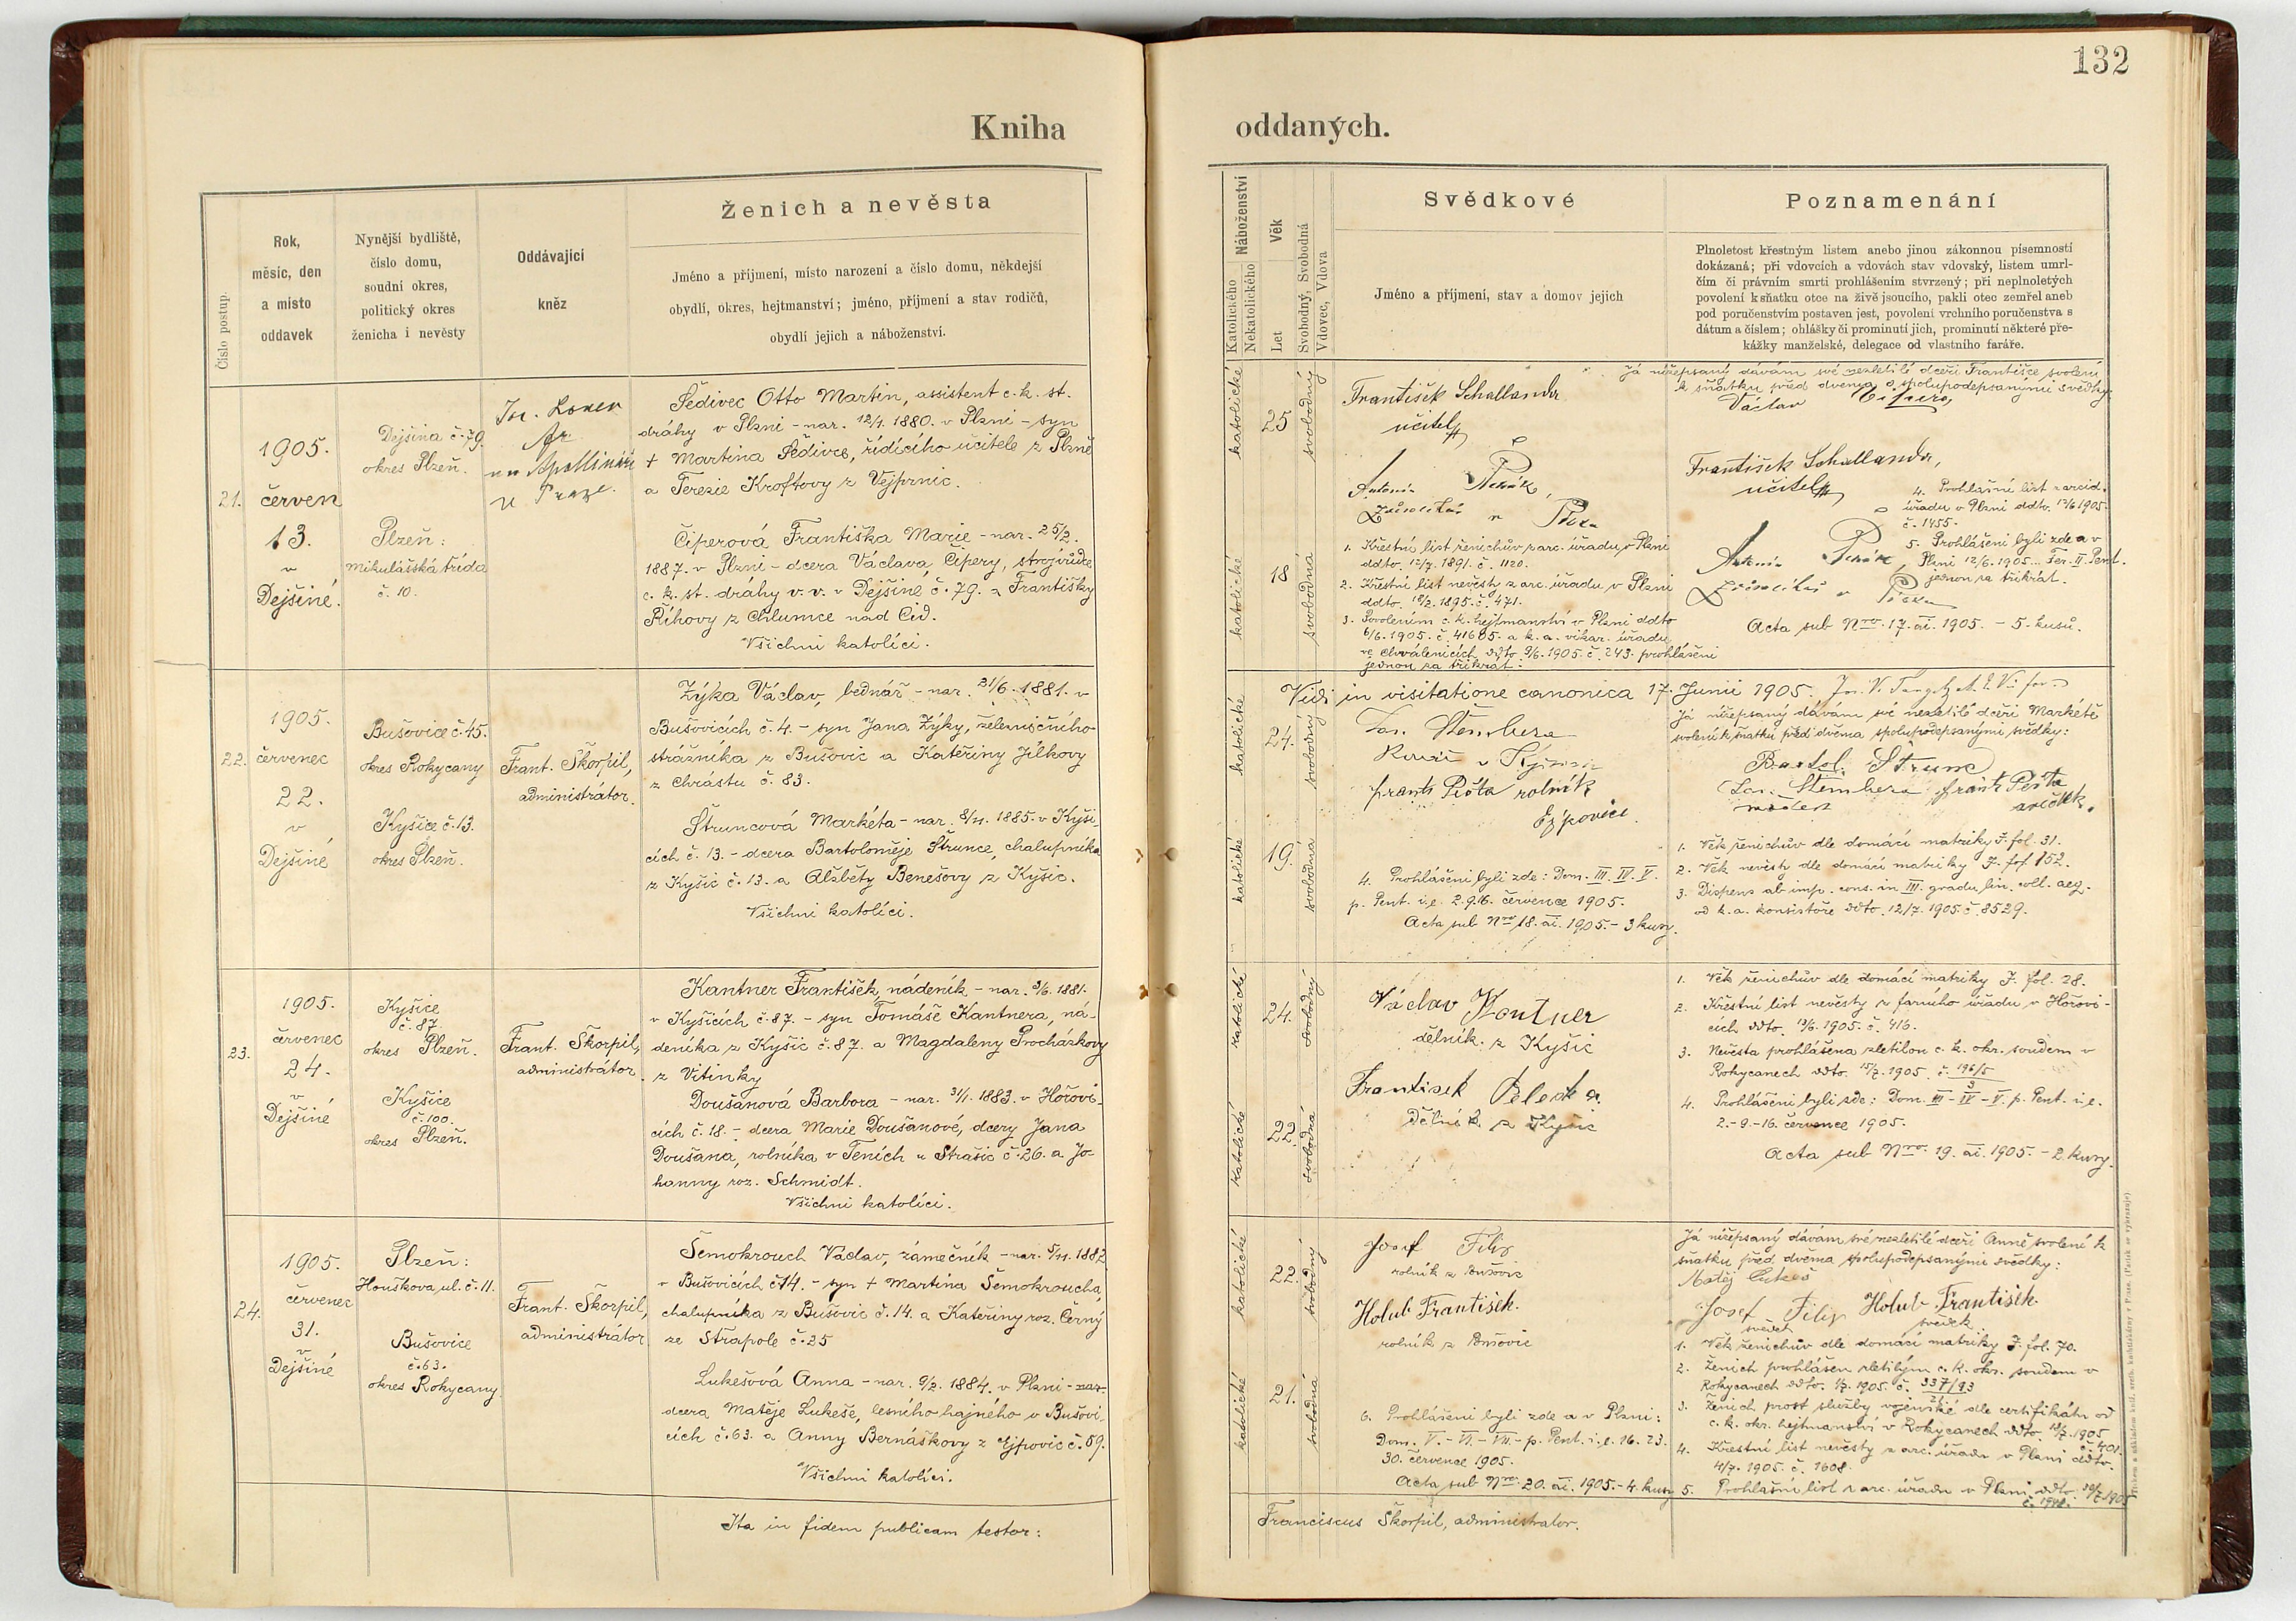 132
Kniha oddaných.
Číslo postup.
Rok,
měsíc, den
a místo
oddavek
Nynější bydliště,
číslo domu,
soudní okres,
politický okres
ženicha i nevěsty
Oddávající
kněz
Ženich a nevěsta
Jméno a příjmení, místo narození a číslo domu, někdejší
obydlí, okres, hejtmanství; jméno, příjmení a stav rodičů,
obydlí jejich a náboženství.
Náboženství
Katolického
Nekatolického
Věk
Let
Svobodný, Svobodná
Vdovec, Vdova
Svědkové
Jméno a příjmení, stav a domov jejich
Poznamenání
Plnoletost křestným listem anebo jinou zákonnou písemností
dokázaná; při vdovcích a vdovách stav vdovský, listem umrl-
čím či právním smrti prohlášením stvrzený; při neplnoletých
povolení k sňatku otce na živě jsoucího, pakli otec zemřel aneb
pod poručenstvím postaven jest, povolení vrchního poručenstva s
dátum a číslem; ohlášky či prominutí jich, prominutí některé pře-
kážky manželské, delegace od vlastního faráře.
21.
1905.
červen
13.
v
Dejšině.
Dejšina č. 79.
okres Plzeň.
Plzeň:
Mikulášská třída
č. 10.
Šedivec Otto Martin, assistent c. k. st.
dráhy v Plzni - nar. 12/1. 1880. v Plzni - syn
† Martina Šedivce, řídícího učitele z Plzně
a Terezie Kroftovy z Vejprnic.
Čiperová Františka Marie - nar. 25/2.
1887. v Plzni - dcera Václava Čipery, strojvůdce
c. k. st. dráhy v. v. v Dejšině č. 79. a Františky
Říhovy z Chlumce nad Cid.
Všichni katolíci.
katolické
25
svobodný
katolické
18
svobodná
František Schallander
učitel
Antonín
1. Křestní list ženichův z arc. úřadu v Plzni
ddto. 12/7. 1891. č. 1120.
2. Křestní list nevěsty z arc. úřadu v Plzni
ddto. 18/2. 1895. č. 471.
3. Povolením c. k. hejtmanství v Plzni ddto
6/6. 1905. č. 41605. a k. a. vikar. úřadu
ve Chválenicích ddto 9/6. 1905. č. 243. prohlášeni
jednou za třikrát.
Já nížepsaný dávám své nezletilé dceři Františce svolení
k sňatku před dvema spolupodepsanými svědky.
Václav Čipera
František Schallander,
učitel
4. Prohlášní list z arcid.
úřadu v Plzni ddto. 12/6 1905.
č. 1455.
5. Prohlášeni byli zde a v
Plzni 12/6. 1905. Fer. II. Pent.
jednou za třikrát.
Antonín
Acta sub Nro. 17. ai. 1905. - 5. kusů.
22.
1905.
červenec
22.
v
Dejšině
Bušovice č. 45.
okres Rokycany
Kyšice č. 13.
okres Plzeň.
Frant. Škorpil,
administrátor.
Zýka Václav, bednář - nar. 21/6. 1881. v
Bušovicích č. 4. - syn Jana Zýky, železničního
strážníka z Bušovic a Kateřiny Jílkovy
z Chrástu č. 83.
Štruncová Markéta - nar. 8/11. 1885. v Kyši-
cích č. 13. - dcera Bartoloměje Štrunce, chalupníka
z Kyšic č. 13. a Alžběty Benešovy z Kyšic.
Všichni katolíci.
Vidi in visitatione canonica 17. Junii 1905.
katolické
24.
svobodný
katolické
19.
svobodná
Jan Štembera
Frant. Pešta rolník
Ejpovice.
4. Prohlášeni byli zde: Dom. III. IV. V.
p. Pent. i. e. 2. 9. 16. července 1905.
Acta sub Nro 18. ai. 1905. - 3 kusy.
Já nížepsaný dávám své nezletilé dceři Markétě
svolení k sňatku před dvěma spolupodepsanými svědky:
Bartol. Štrunc
Jan Štembera Frant. Pešta
svědek.
1. Věk ženichův dle domácí matriky J. fol. 31.
2. Věk nevěsty dle domácí matriky J. fol. 152.
3. Dispens ab imp. cons. in III. gradu lin. coll. aeq.
od k. a. konsistoře ddto. 12/7. 1905. č. 8529.
23.
1905.
červenec
24.
v
Dejšině
Kyšice
č. 87.
okres Plzeň.
Kyšice
č. 100.
okres Plzeň.
Frant. Škorpil,
administrátor.
Kantner František, nádeník - nar. 3/6. 1881.
v Kyšicích č. 87. - syn Tomáše Kantnera, ná-
deníka z Kyšic č. 87. a Magdaleny Procházkovy
z Vitinky
Doušanová Barbora - nar. 31/1. 1883. v Hořovi-
cích č. 18. - dcera Marie Doušanové, dcery Jana
Doušana, rolníka v Teních u Strašic č. 26. a Jo-
hanny roz. Schmidt.
Všichni katolíci.
katolické
24.
svobodný
katolické
22.
svobodná
Václav Kantner
dělník z Kyšic
Frantisek
dělník z Kyšic
1. Věk ženichův dle domácí matriky J. fol. 28.
2. Křestní list nevěsty z farního úřadu v Hořovi-
cích ddto. 13/6. 1905. č. 416.
3. Nevěsta prohlášena zletilou c. k. okr. soudem v
Rokycanech ddto. 15/7. 1905. č. 196/5
3
4. Prohlášeni byli zde: Dom. III - IV - V. p. Pent. i. e.
2. - 9. - 16. července 1905.
Acta sub Nro. 19. ai. 1905. - 2 kusy.
24.
1905.
červenec
31.
v
Dejšině
Plzeň:
Houškova ul. č. 11.
Bušovice
č. 63.
okres Rokycany
Frant. Škorpil,
administrátor
Šemokrouch Václav, zámečník - nar. 5/11. 1882
v Bušovicích č. 14. - syn † Martina Šemokroucha,
chalupníka z Bušovic č. 14. a Kateřiny roz. Černý
ze Střapole č. 25
Lukešová Anna - nar. 9/2. 1884. v Plzni - nar.
dcera Matěje Lukeše, lesního hajného v Bušovi-
cích č. 63. a Anny Bernáškovy z Ejpovic č. 59.
Všichni katolíci.
katolické
22.
svobodný
katolické
21.
svobodná
Josef Filip
rolník z Bušovic
Holub František.
rolník z Bušovic
6. Prohlášeni byli zde a v Plzni:
Dom. V. - VI. - VII. - p. Pent. i. e. 16. 23.
30. července 1905.
Acta sub Nro. 20. ai. 1905. - 4. kusy
Já nížepsaný dávám své nezletilé dceři Anně svolení k
sňatku před dvěma spolupodepsanými svědky:
Matěj Lukeš
Josef Filip Holub František.
svědek svědek
1. Věk ženichův dle domácí matriky J. fol. 70.
2. Ženich prohlášen zletilým c. k. okr. soudem v
Rokycanech ddto. 1/7. 1905. č. 337/93
3. Ženich prost služby vojenské dle certifikátu od
c. k. okr. hejtmanství v Rokycanech ddto. 1905
č. 401.
4. Křestní list nevěsty z arc. úřadu v Plzni ddto.
4/7. 1905. č. 1608.
5. Prohlášní list z arc. úřadu v Plzni ddto. 1905
Ita in fidem publicam testor:
Franciscus Škorpil, administrator.